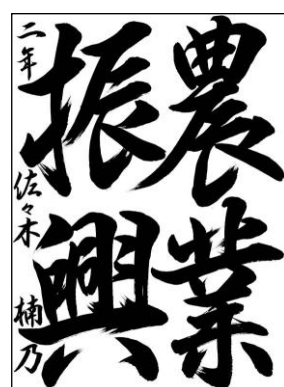 農業
振興
二年 佐々木 楠乃